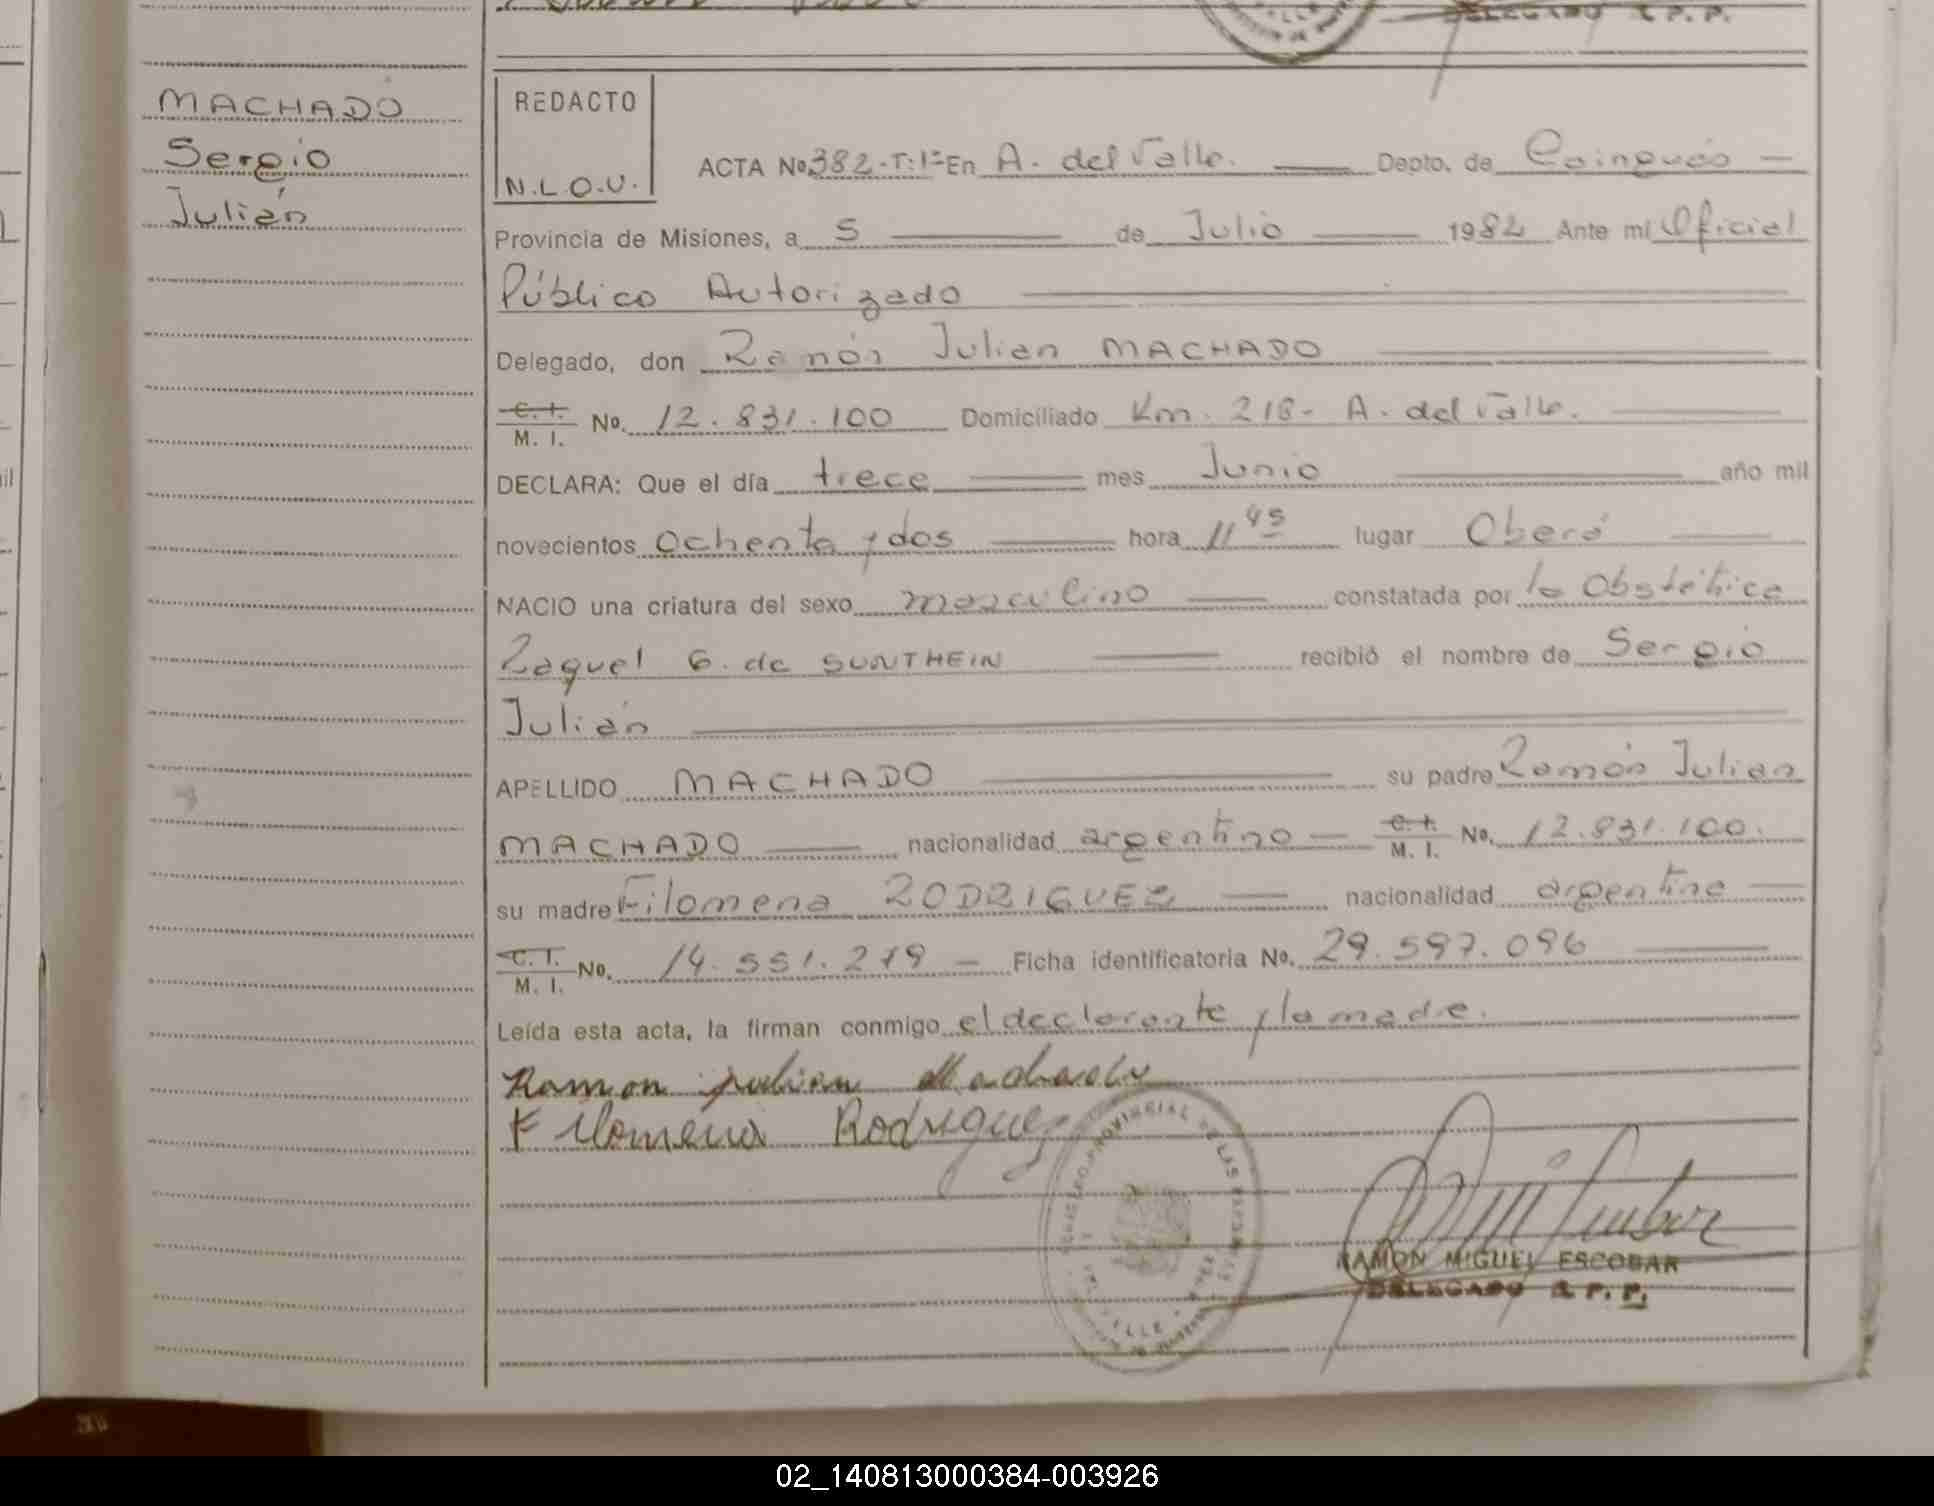 DELEGADO R.P.P.
MACHADO
Sergio
Julián
REDACTO
N.L.O.V.
ACTA No 382-T:1º En A. del Valle. Depto. de Cainguás
Provincia de Misiones, a 5 de Julio 1982 Ante mí Oficial
Público Autorizado
Delegado, don Ramón Julian MACHADO
C. I. M. I. No. 12.831.100 Domiciliado Km. 218- A. del Valle.
DECLARA: Que el día trece mes Junio año mil
novecientos ochenta y dos hora 11 45 lugar Oberá
NACIO una criatura del sexo masculino constatada por la Obstétrica
Raquel G. de SUNTHEIN recibió el nombre de Sergio
Julián
APELLIDO MACHADO su padre Ramón Julian
MACHADO nacionalidad argentino C. I. M. I. No. 12.831.100.
su madre Filomena RODRIGUEZ nacionalidad argentina
C. I. M. I. No. 14.551.219 Ficha identificatoria No. 29.597.096
Leída esta acta, la firman conmigo el declarante y la madre.
Ramon julian Machado
Filomena Rodriguez
REGISTRO PROVINCIAL DE LAS PERSONAS
VALLE
RAMON MIGUEL ESCOBAR
DELEGADO R.P.P.
02_140813000384-003926